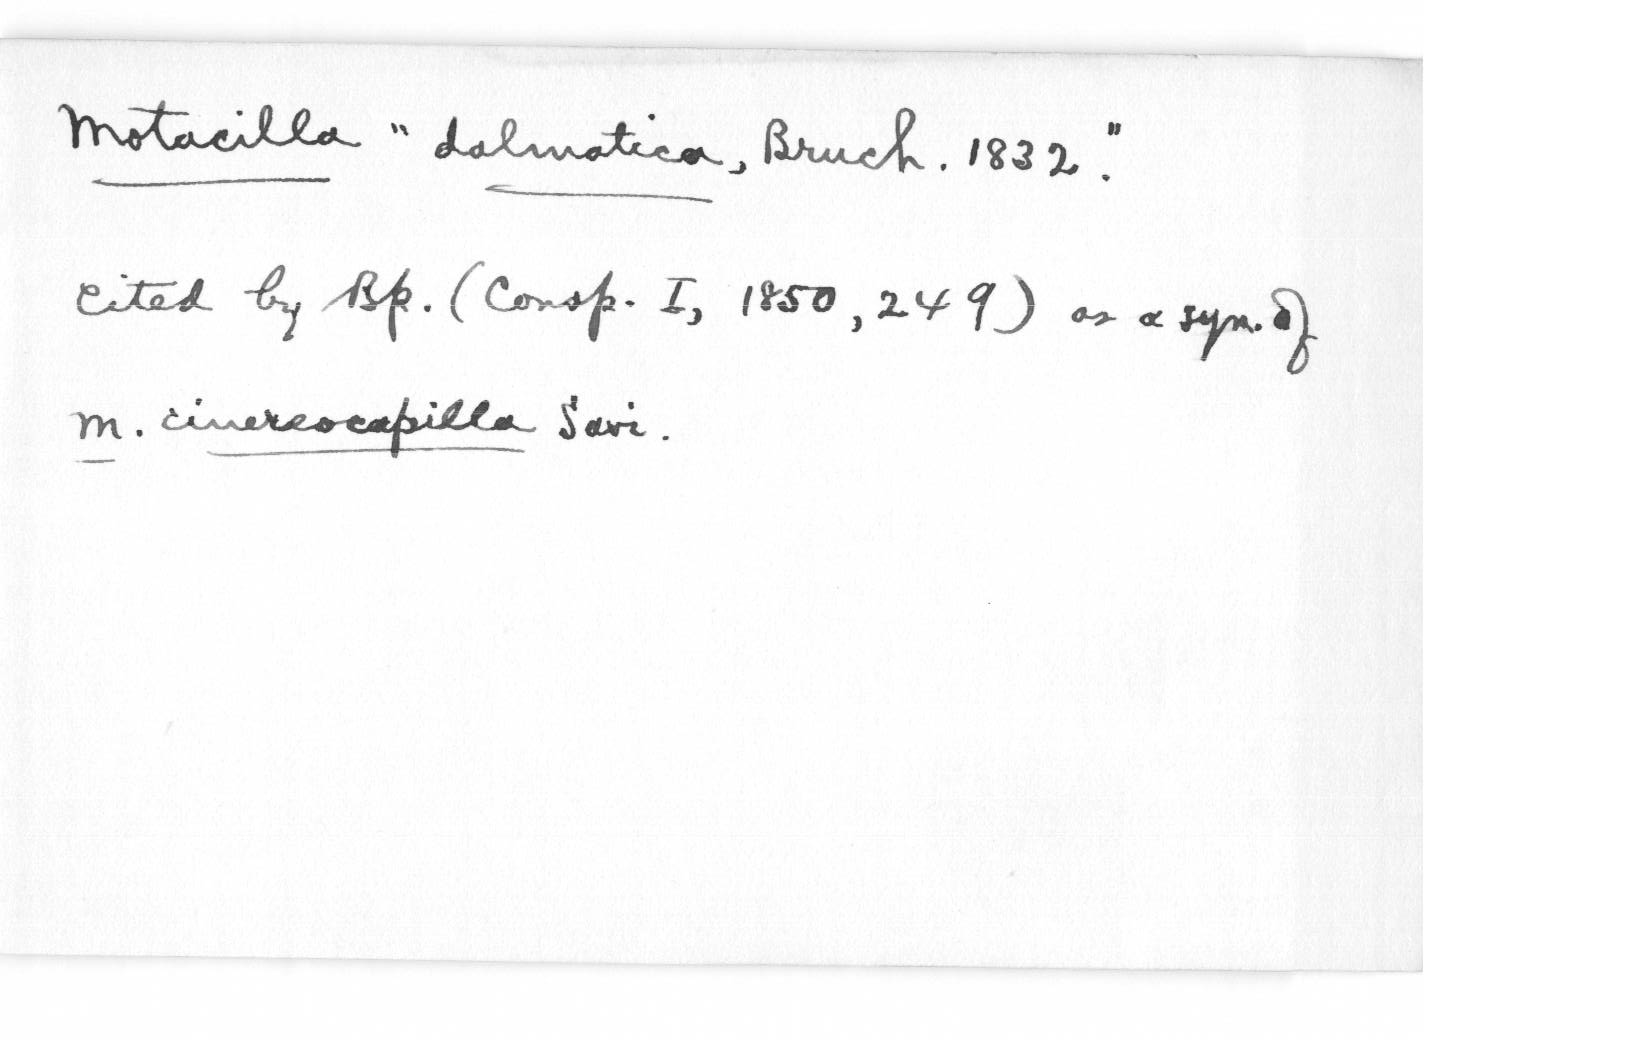 Motacilla "dalmatica, Bruch. 1832."
cited by Bp. (Consp. I, 1850, 249) as a syn. of
M. cinereocapilla Savi.